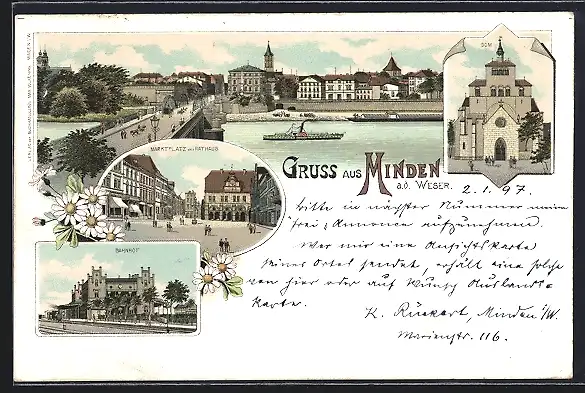 DOM
MARKTPLATZ MIT RATHAUS
GRUSS AUS MINDEN
a.d. WESER.
2.1.97.
Bitte in nächster Nummer meine
frei-Annonce aufzunehmen.
Wer mir eine Ansichtskarte
seines Ortes sendet, erhält eine solche
von hier oder auf Wunsch Auslands-
karte.
K. Rückert, Minden i/W
Marienstr. 116.
BAHNHOF